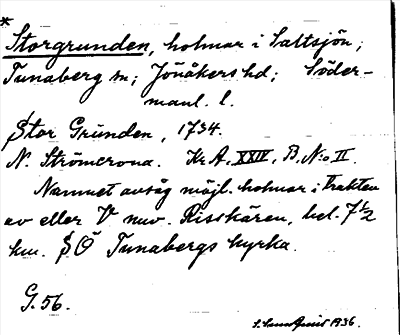 *
Storgrunden, holmar i Saltsjön;
Tunaberg sn; Jönåkers hd; Söder-
manl. l.
Stor Grunden, 1734.
N. Strömcrona. Kr A. XXIV, B. N:o II.
Namnet avsåg möjl. holmar i trakten
av eller V nuv. Risskären, bel. 7 1/2
km. S.O Tunabergs kyrka.
G. 56.
1936.